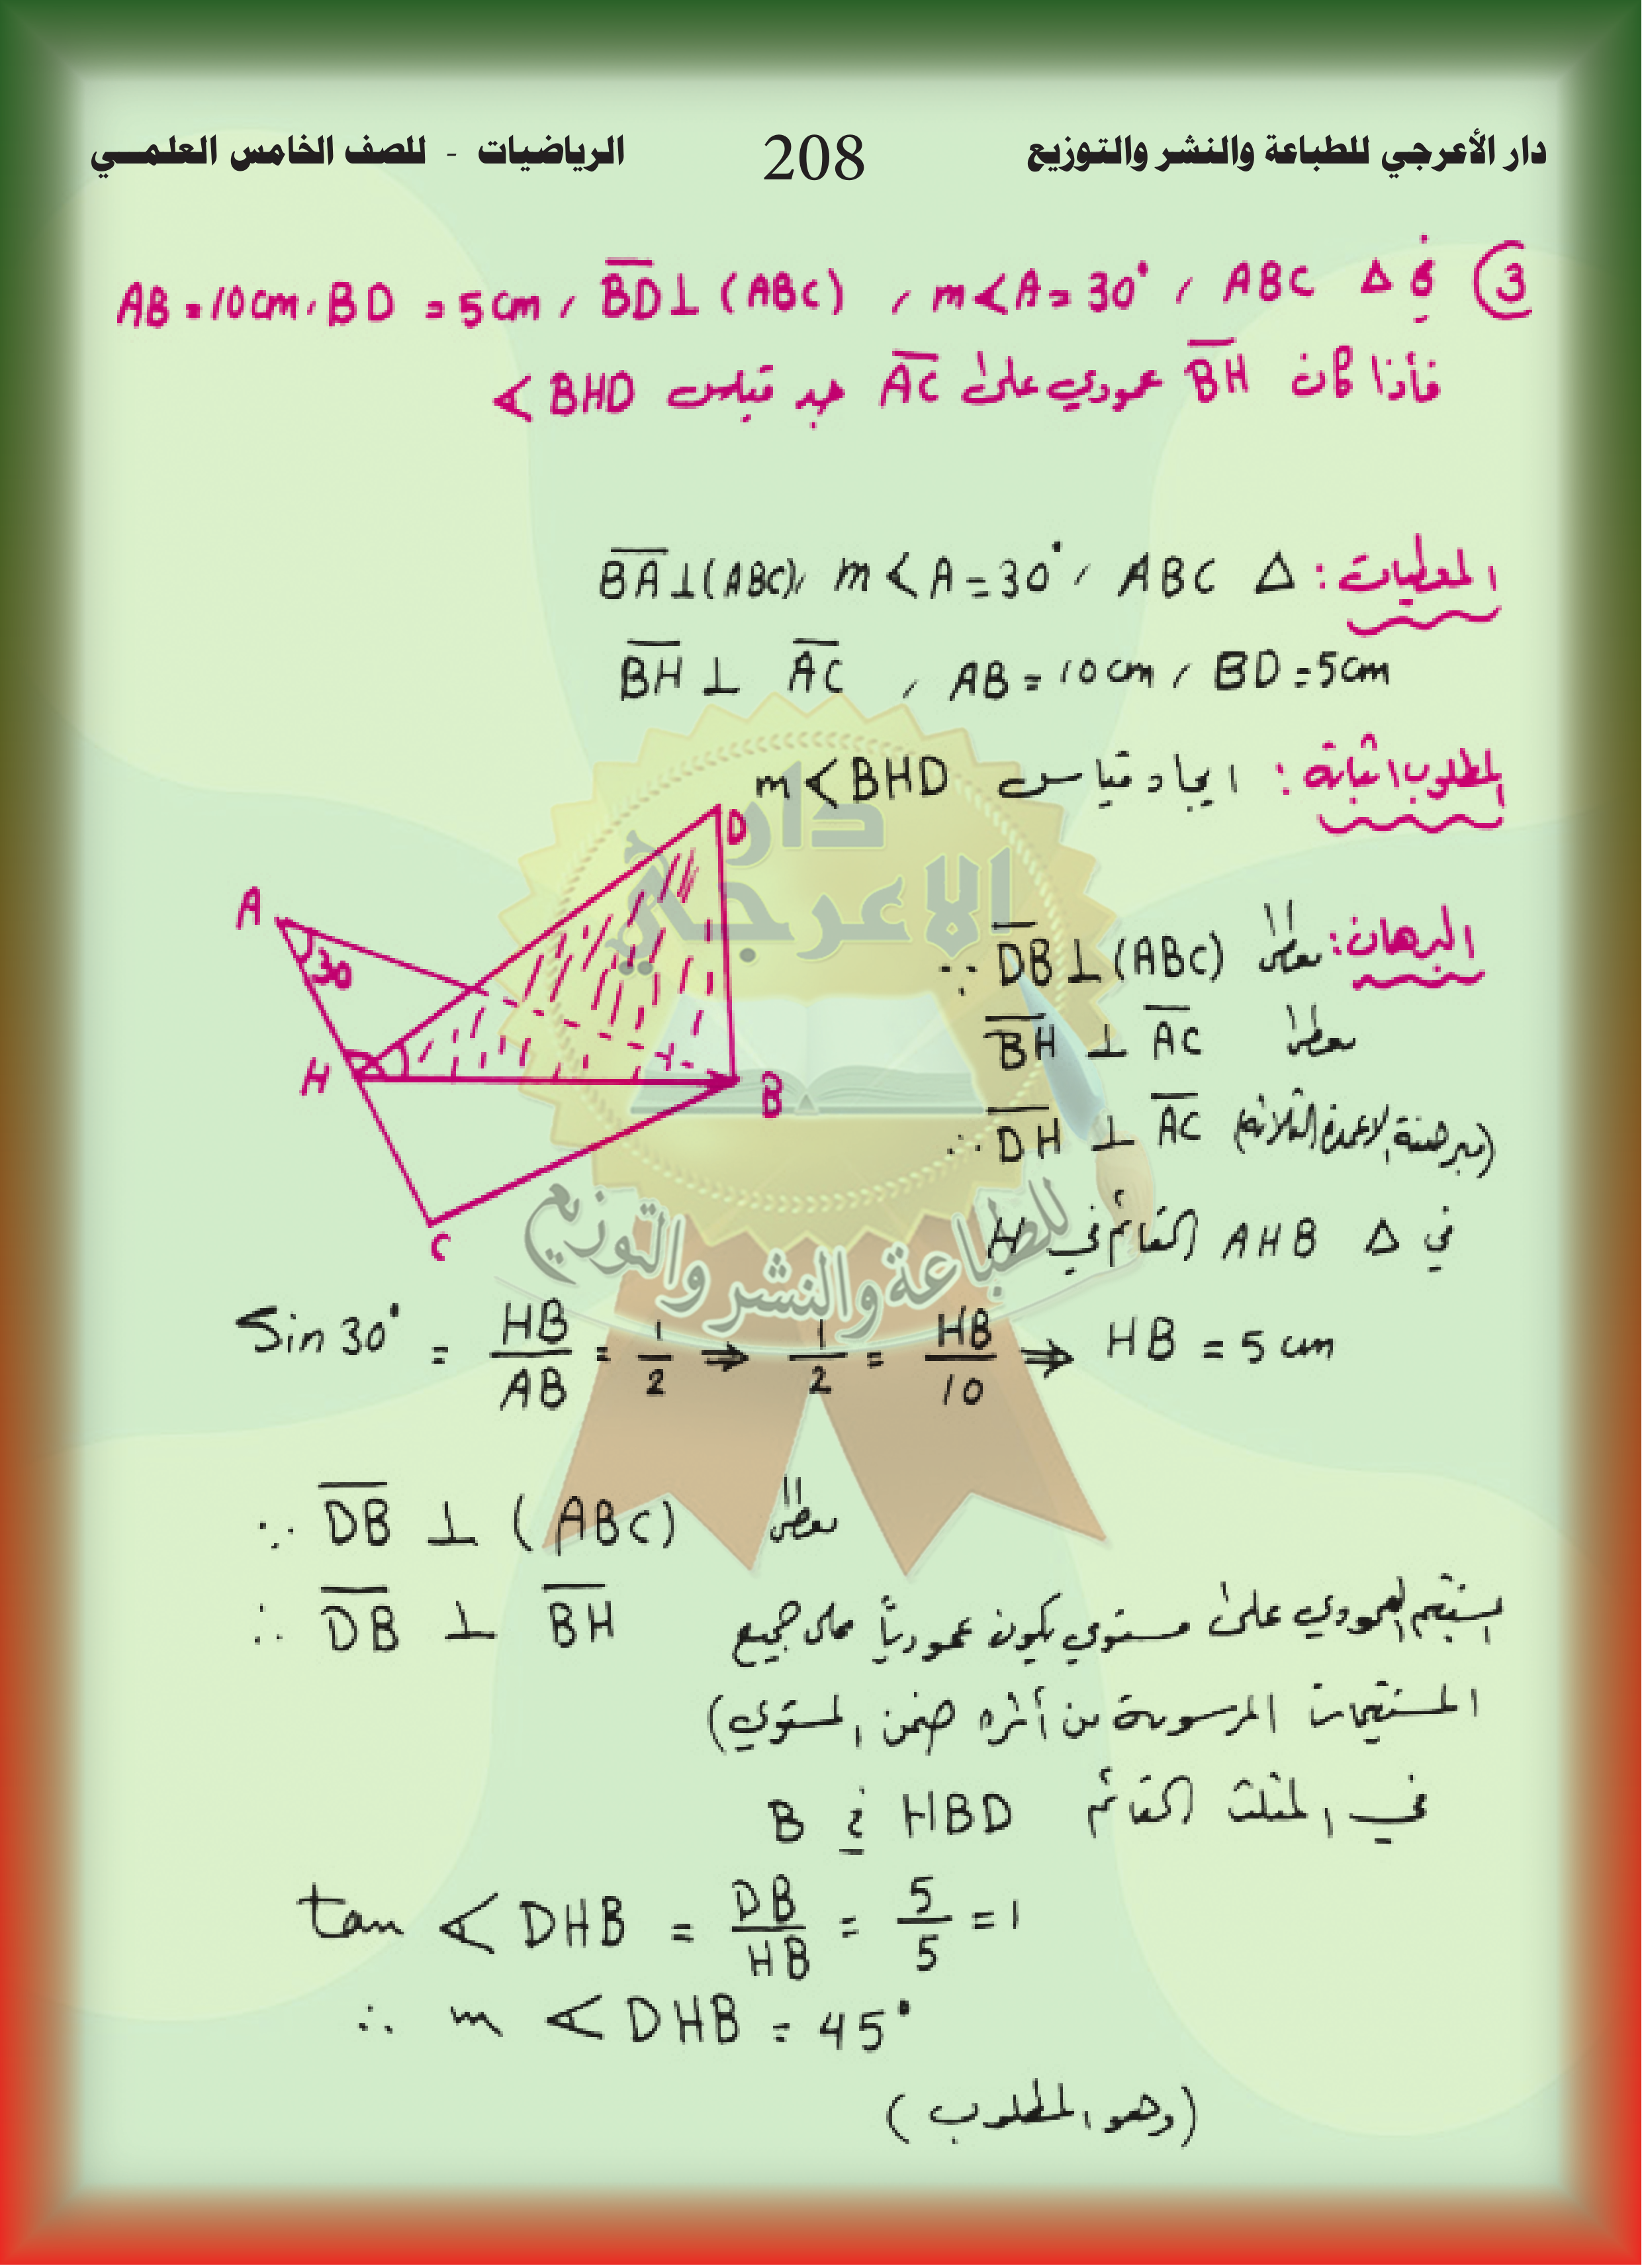 دار الأعرجي للطباعة والنشر والتوزيع 208 الرياضيات - للصف الخامس العلمــي
③ في Δ ABC ، m∢A = 30° ، \overline{BD} ⊥ (ABC) ، BD = 5 cm ، AB = 10 cm
فأذا كان \overline{BH} عمودي على \overline{AC} جد قياس ∢BHD
المعطيات : Δ ABC ، m∢A = 30° ، \overline{BA} ⊥ (ABC)
BD = 5cm ، AB = 10 cm ، \overline{BH} ⊥ \overline{AC}
المطلوب اثباته : ايجاد قياس m∢BHD
البرهان : ∵ \overline{DB} ⊥ (ABC) معطى
\overline{BH} ⊥ \overline{AC} معطى
∴ \overline{DH} ⊥ \overline{AC} (مبرهنة الاعمدة الثلاثة)
في Δ AHB القائم في H
D
A
30
H
B
C
Sin 30° = HB/AB = 1/2 ⇒ 1/2 = HB/10 ⇒ HB = 5 cm
∵ \overline{DB} ⊥ (ABC) معطى
∴ \overline{DB} ⊥ \overline{BH} المستقيم العمودي على مستوي يكون عمودياً على جميع
المستقيمات المرسومة من أثره ضمن المستوي)
في المثلث القائم HBD في B
tan ∢DHB = DB/HB = 5/5 = 1
∴ m ∢DHB = 45°
(وهو المطلوب)
دار
الاعرجي
للطباعة والنشر والتوزيع